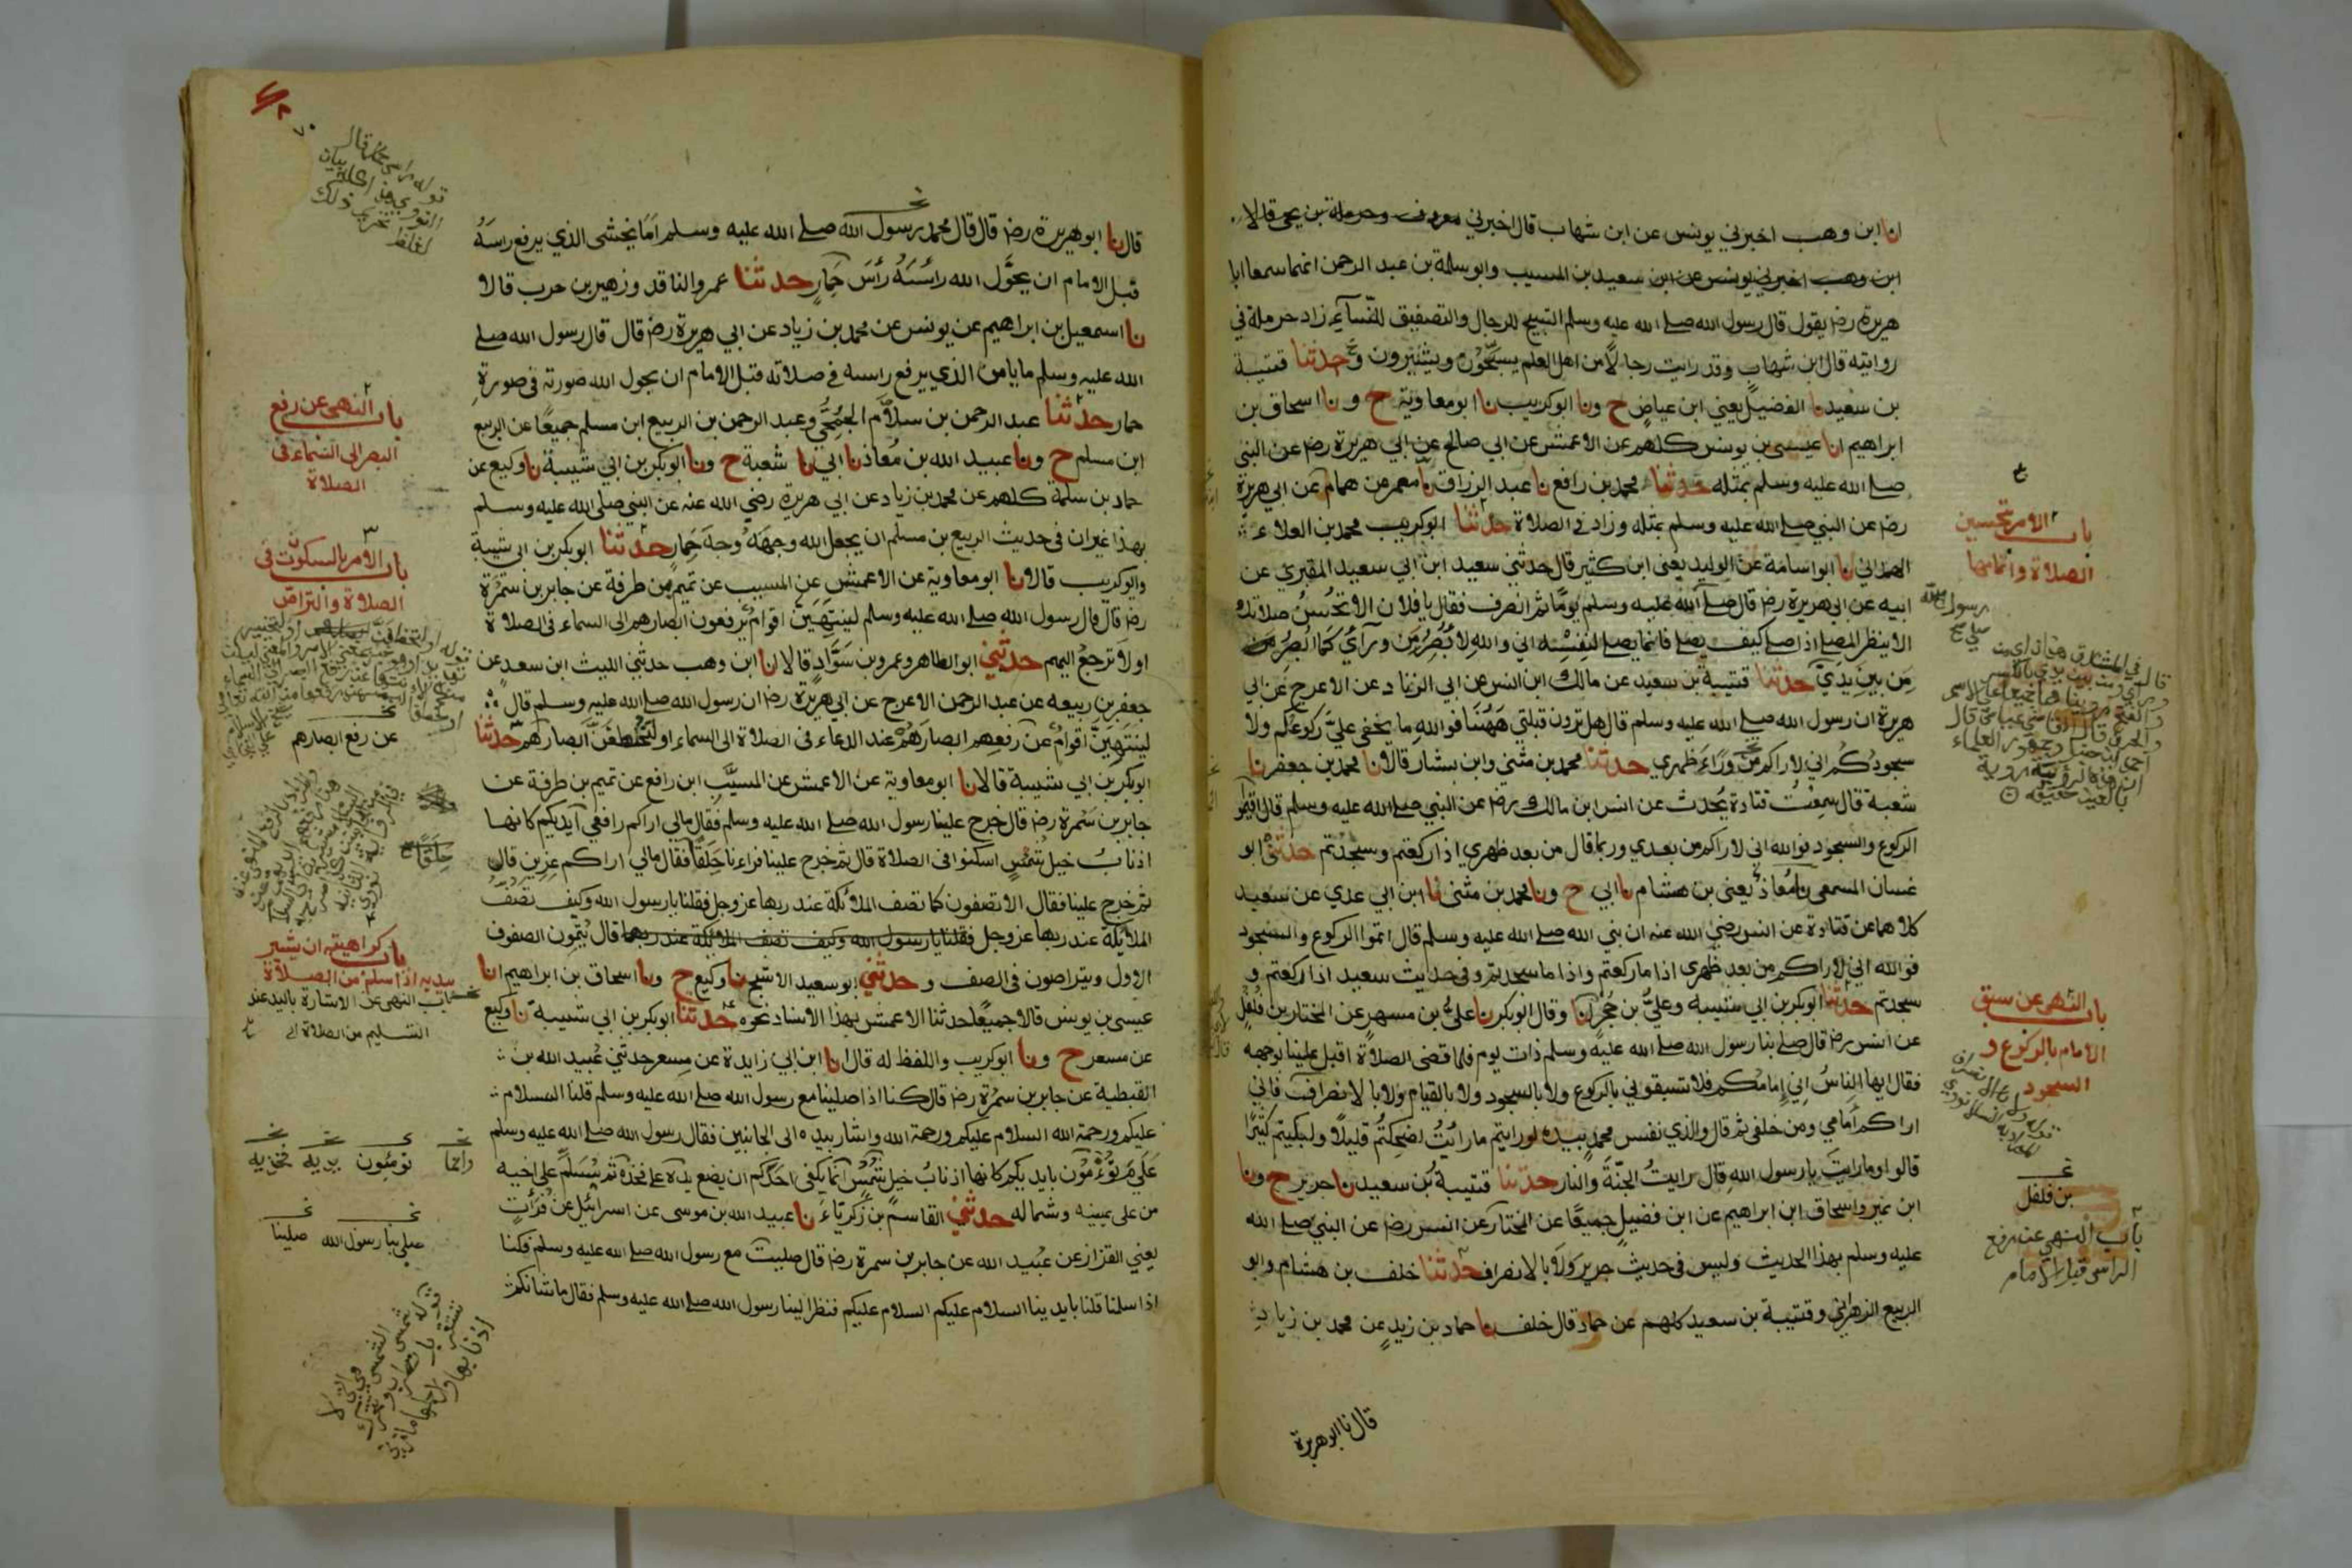 انا ابن وهب اخبرني يونس عن ابن شهاب قال اخبرني معروف وحرملة بن يحيى قالا
ابن وهب اخبرني يونس عن ابن سعيد بن المسيب وابو سلمة بن عبد الرحمن انهما سمعا ابا
هريرة رضـ يقول قال رسول الله صلى الله عليه وسلم التسبيح للرجال والتصفيق للنسآء زاد حرملة في
روايته قال ابن شهاب وقد رايت رجالا من اهل العلم يسبّحون ويشيرون و حدثنا قتيبة
بن سعيد نا الفضيل يعني ابن عياض ح ونا ابوكريب نا ابو معاوية ح ونا اسحاق بن
ابراهيم انا عيسى بن يونس كلهم عن الاعمش عن ابي صالح عن ابي هريرة رضـ عن النبي
صلى الله عليه وسلم بمثله حدثنا محمد بن رافع نا عبد الرزاق نا معمر عن همام عن ابي هريرة
رضـ عن النبي صلى الله عليه وسلم بمثله وزاد في الصلاة حدثنا ابوكريب محمد بن العلاء
الهمداني نا ابو اسامة عن الوليد يعني ابن كثير قال حدثني سعيد ابن ابي سعيد المقبري عن
ابيه عن ابي هريرة رضـ قال صلى الله عليه وسلم يوما ثم انصرف فقال يا فلان الا تحسن صلاتك
الا ينظر المصلي اذا صلى كيف يصلي فانما يصلي لنفسه اني والله لا بصر من ورآءي كما ابصر من
مِن بين يديّ حدثنا قتيبة بن سعيد عن مالك ابن انس عن ابي الزناد عن الاعرج عن ابي
هريرة ان رسول الله صلى الله عليه وسلم قال هل ترون قبلتي ههنا فوالله ما يخفى عليّ ركوعكم ولا
سجودكم اني لاراكم من وراء ظهري حدثنا محمد بن مثني وابن بشار قالا نا محمد بن جعفر نا
شعبة قال سمعت قتادة يحدث عن انس ابن مالك رضـ عن النبي صلى الله عليه وسلم قال اقيموا
الركوع والسجود فوالله اني لاراكم من بعدي وربما قال من بعد ظهري اذا ركعتم وسجدتم حدثني ابو
غسان المسمعي نا معاذ يعني بن هشام نا ابي ح ونا محمد بن مثنى نا ابن ابي عدي عن سعيد
كلاهما عن قتادة عن انس رضي الله عنه ان نبي الله صلى الله عليه وسلم قال اتموا الركوع والسجود
فوالله اني لاراكم من بعد ظهري اذا ما ركعتم واذا ما سجدتم وفي حديث سعيد اذا ركعتم و
سجدتم حدثنا ابوبكر بن ابي شيبة وعليّ بن حُجْر انا وقال ابوبكر نا علي بن مسهر عن المختار بن فلفل
عن انس رضـ قال صلى بنا رسول الله صلى الله عليه وسلم ذات يوم فلما قضى الصلاة اقبل علينا بوجهه
فقال ايها الناس اني امامكم فلا تسبقوني بالركوع ولا بالسجود ولا بالقيام ولا با لانصراف فاني
اراكم أمامي ومن خلفي ثم قال والذي نفس محمد بيده لو رايتم ما رأيت لضحكتم قليلا ولبكيتم كثيرًا
قالوا وما رايتَ يا رسول الله قال رايت الجنّة والنار حدثنا قتيبة بن سعيد نا جرير ح ونا
ابن نمير واسحاق ابن ابراهيم عن ابن فضيل جميعًا عن المختار عن انس رضـ عن النبي صلى الله
عليه وسلم بهذا الحديث وليس في حديث جرير ولا بالانصراف حدثنا خلف بن هشام وابو
الربيع الزهراني وقتيبة بن سعيد كلهم عن حماد قال خلف نا حماد بن زيد عن محمد بن زياد
قال نا ابو هريرة
باب الامر بتحسين
الصلاة واتمامها
باب النهي عن سبق
الامام بالركوع و
السجود
بن فلفل
باب النهي عن رفع
الراس قبل الامام
قال نا ابوهريرة رضـ قال قال محمد رسول الله صلى الله عليه وسلم اَمَا يخشى الذي يرفع راسهُ
قبل الامام ان يحوّل الله رأسَهُ رأسَ حمارٍ حدثنا عمرو الناقد وزهير بن حرب قالا
نا اسمعيل بن ابراهيم عن يونس عن محمد بن زياد عن ابي هريرة رضـ قال قال رسول الله صلى
الله عليه وسلم ما يامن الذي يرفع راسه في صلاته قبل الامام ان يحول الله صورته في صورةِ
حمار حدثنا عبد الرحمن بن سلام الجمحي وعبد الرحمن بن الربيع ابن مسلم جميعًا عن الربيع
ابن مسلم ح ونا عبيد الله بن معاذ نا ابي نا شعبة ح ونا ابوبكر بن ابي شيبة نا وكيع عن
حماد بن سلمة كلهم عن محمد بن زياد عن ابي هريرة رضي الله عنه عن النبي صلى الله عليه وسلم
بهذا غير ان في حديث الربيع بن مسلم ان يجعل الله وجهَهُ وجهَ حمارٍ حدثنا ابوبكر بن ابي شيبة
وابوكريب قالا نا ابو معاوية عن الاعمش عن المسيب عن تميم بن طرفة عن جابر بن سمُرة
رضـ قال قال رسول الله صلى الله عليه وسلم لينتهِيَنّ اقوامٌ يرفعون ابصارهم الى السماء في الصلاة
او لا ترجعُ اليهم حدثني ابو الطاهر وعمرو بن سوَّادٍ قالا انا ابن وهب حدثني الليث ابن سعد عن
جعفر بن ربيعه عن عبد الرحمن الاعرج عن ابي هريرة رضـ ان رسول الله صلى الله عليه وسلم قال
لينتهيَنّ اقوامٌ عن رفعهم ابصارهم عند الدعاء في الصلاة الى السماء او لتخطفنّ ابصارهم حدثنا
ابوبكر بن ابي شيبة قالا نا ابو معاوية عن الاعمش عن المسيَّب ابن رافع عن تميم بن طرفة عن
جابر بن سمرة رضـ قال خرج علينا رسول الله صلى الله عليه وسلم فقال مالي اراكم رافعي ايديكم كانها
اذنابُ خيل شُمْسٍ اسكنوا في الصلاة قال ثم خرج علينا فراءنا حلقًا فقال مالي اراكم عزين قال
ثم خرج علينا فقال الا تصفون كما تصف الملائكة عند ربها عز وجل فقلنا يا رسول الله وكيف تصف
الملائكة عند ربها عز وجل فقلنا يا رسول الله وكيف تصف الملائكة عند ربها قال يُتمون الصفوف
الاول ويتراصون في الصف و حدثني ابو سعيد الاشج نا وكيع ح ونا اسحاق بن ابراهيم انا
عيسى بن يونس قالا جميعًا حدثنا الاعمش بهذا الاسناد نحوه حدثنا ابوبكر بن ابي شيبة نا وكيع
عن مسعر ح ونا ابوكريب واللفظ له قال انا ابن ابي زايدة عن مِسعر حدثني عُبيد الله بن
القبطية عن جابر بن سمرة رضـ قال كنا اذا صلينا مع رسول الله صلى الله عليه وسلم قلنا السلام
عليكم ورحمة الله السلام عليكم ورحمة الله واشار بيده الى الجانبين فقال رسول الله صلى الله عليه وسلم
عَلَى مَ تُوءْمُون بايديكم كانها اذنابُ خيل شُمْسٍ انما يكفي احدكم ان يضع يده على فخذه ثم يُسَلّم على اخيه
من على يمينه وشماله حدثني القاسم بن زكرياءَ نا عبيد الله بن موسى عن اسرائيل عن فُرَاتٍ
يعني القزاز عن عبيد الله عن جابر بن سمرة رضـ قال صليت مع رسول الله صلى الله عليه وسلم فكنا
اذا سلمنا قلنا بايدينا السلام عليكم السلام عليكم فنظر الينا رسول الله صلى الله عليه وسلم فقال ما شانكم
باب النهي عن رفع
البصر الى السماء في
الصلاة
باب الامر بالسكون في
الصلاة والتراصّ
عن رفع ابصارهم
حِلَقًا
باب كراهيته ان يشير
بيديه اذا سلم من الصلاة
باب النهي عن الاشارة باليد عند
التسليم من الصلاة
وانما تومئون يديه فخذيه
صلى بنا رسول الله صلينا